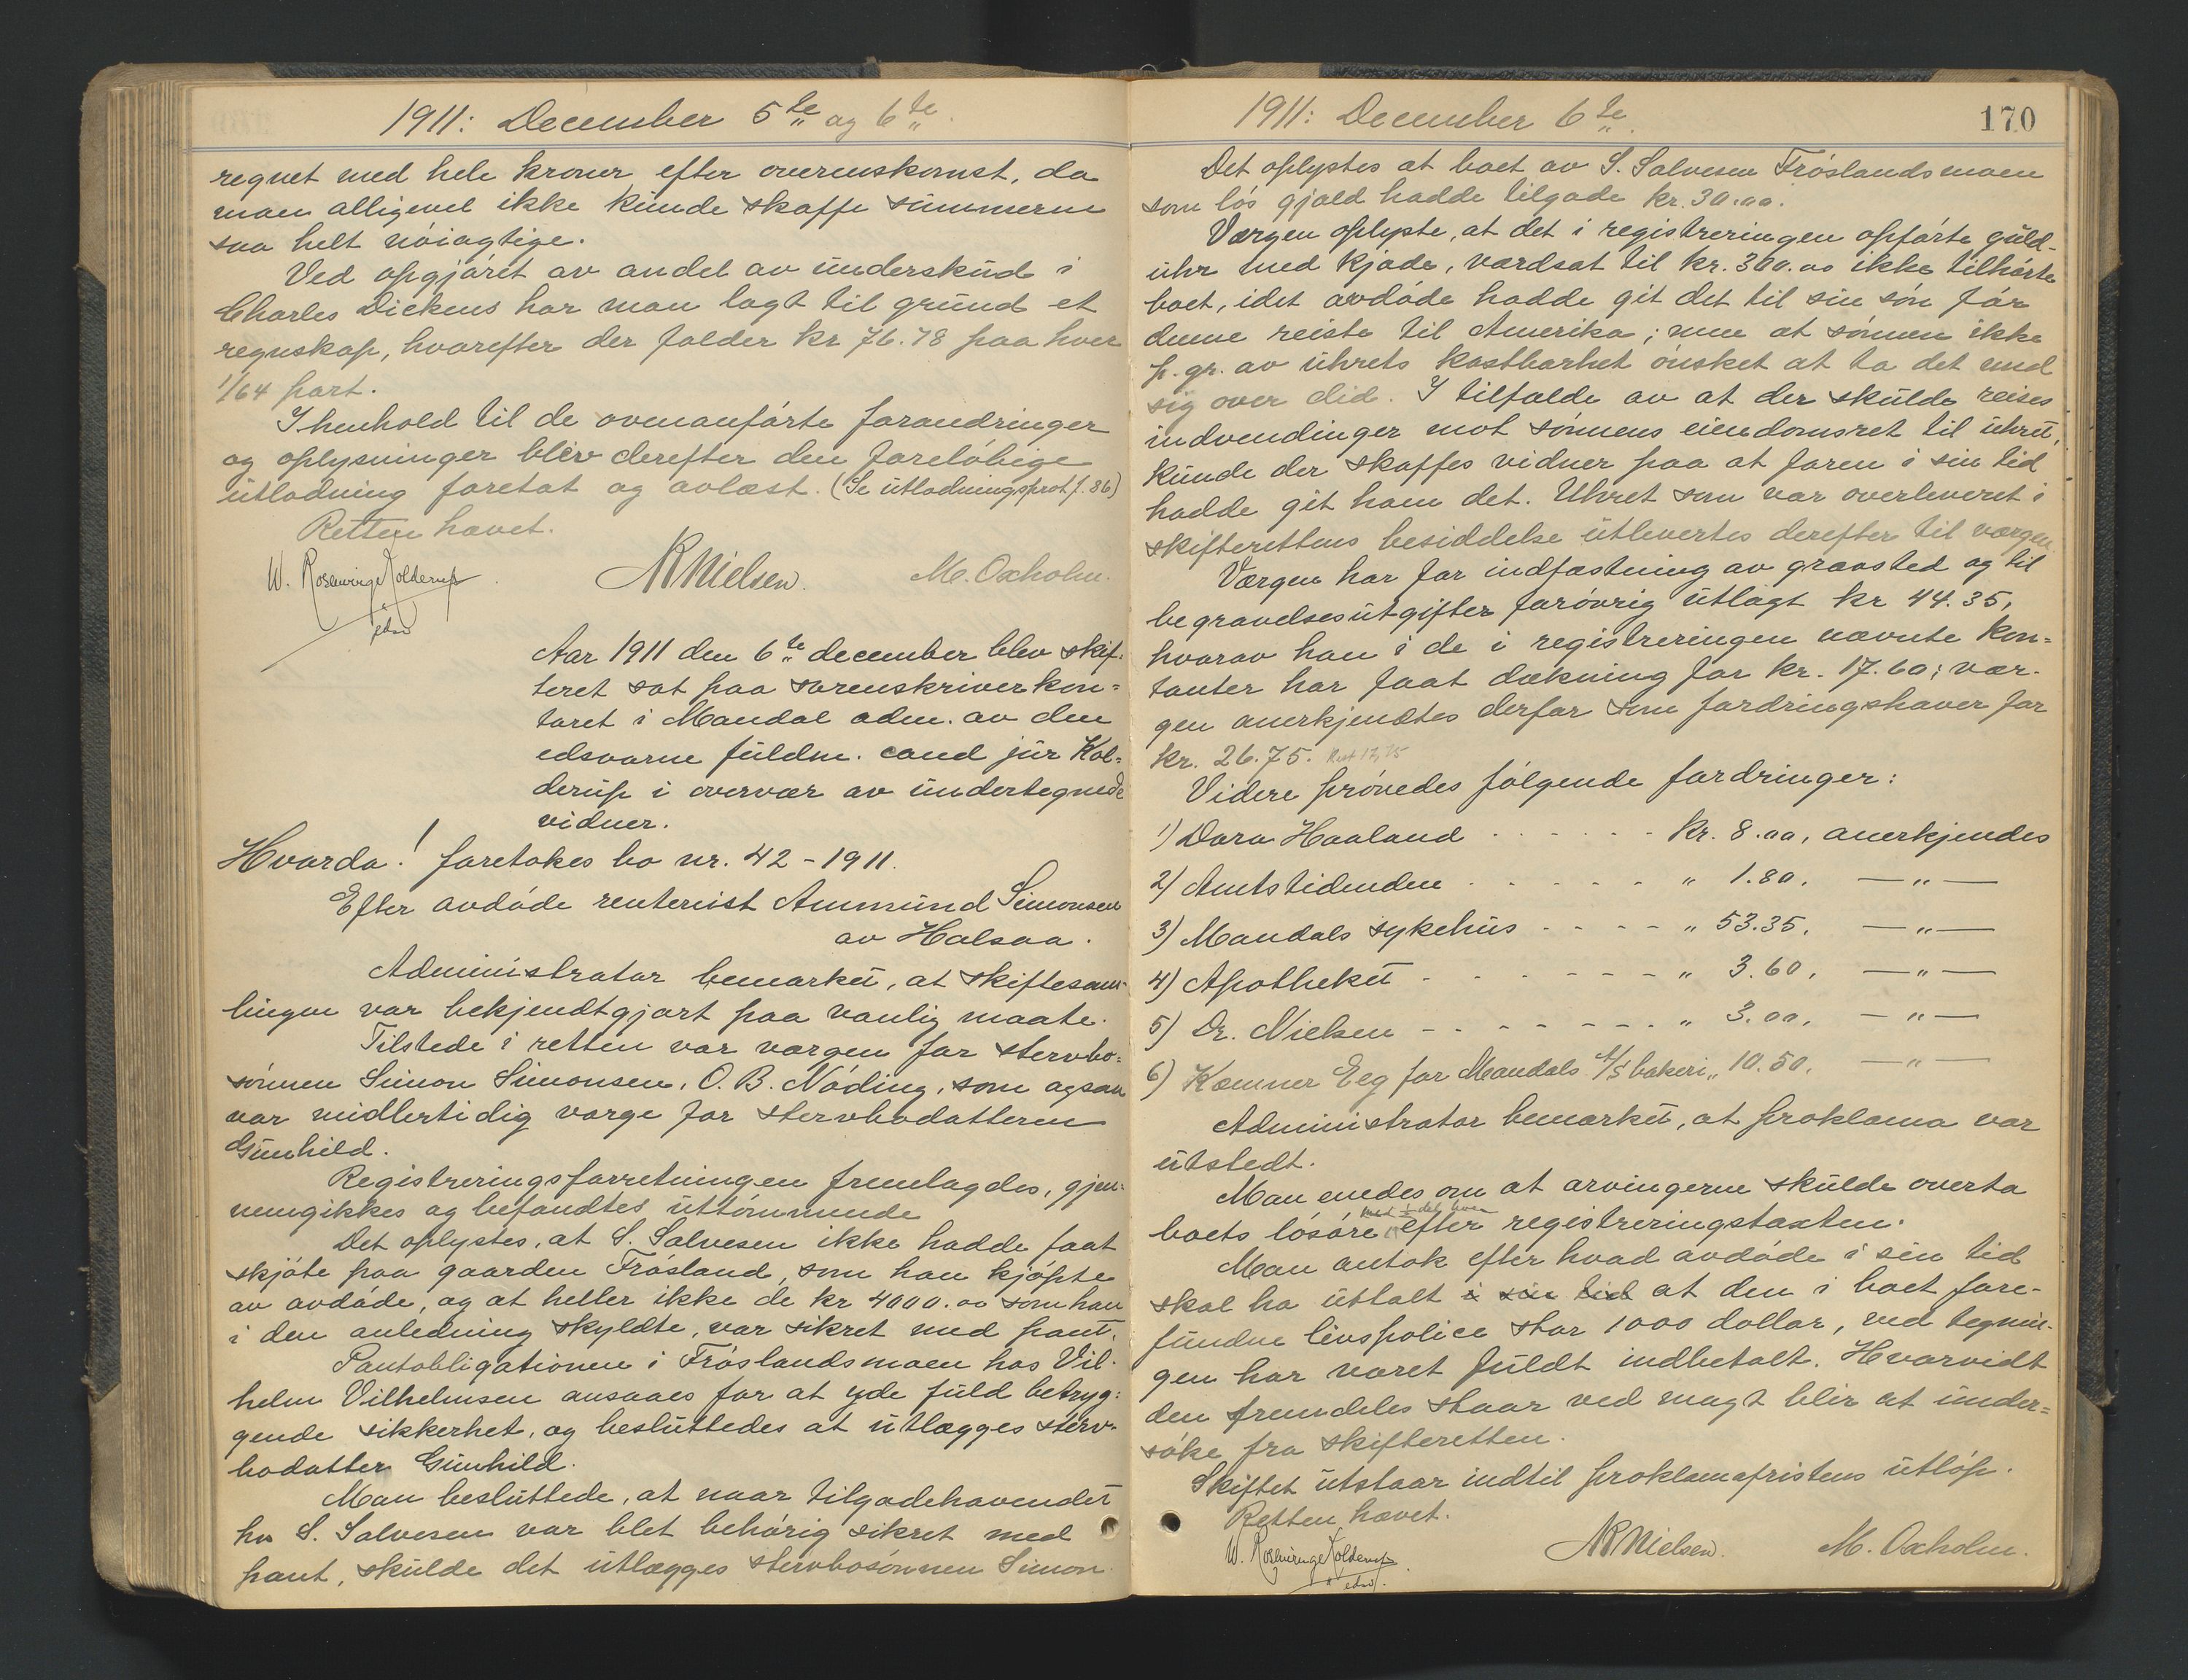 1911: December 5te og 6te.
regnet med hele kroner efter overenskomst, da
man alligevel ikke kunde skaffe summerne
saa helt nøiagtige.
Ved opgjøret av andel av underskud i
Charles Dickens har man lagt til grund et
regnskap, hvorefter der falder kr 76.78 paa hver
1/64 part.
I henhold til de ovenanførte forandringer
og oplysninger blev derefter den foreløbige
utlodning foretat og avlæst. (Se utlodningsprot f. 86)
Retten hævet.
W. Rosenvinge Kolderup NR Nielsen. M. Oxholm.
edsv
Aar 1911 den 6te december blev skif-
teret sat paa sorenskriverkon=
toret i Mandal adm. av den
edsvorne fuldm. cand jur Kol=
derup i overvær av undertegnede
vidner.
Hvorda! foretokes bo nr. 42 - 1911.
Efter avdøde renterist Ammund Simonsen
av Halsaa.
Administrator bemærket, at skiftesam-
lingen var bekjendtgjort paa vanlig maate.
Tilstede i retten var værgen for stervbo=
sønnen Simon Simonsen, O. B. Nøding, som ogsaa
var midlertidig værge for stervbodatteren
Gunhild.
Registreringsforretningen fremlagdes, gjen=
nemgikkes og befandtes uttømmende
Det oplystes, at S. Salvesen ikke hadde faat
skjøte paa gaarden Frøsland, som han kjøpte
av avdøde, og at heller ikke de kr 4000.00 som han
i den anledning skyldte, var sikret med pant.
Pantobligationen i Frøslandsmoen hos Vil-
helm Vilhelmsen ansaaes for at yde fuld betryg=
gende sikkerhet, og besluttedes at utlægges sterv-
bodatter Gunhild.
Man besluttede, at naar tilgodehavendet
hos S. Salvesen var blet behørig sikret med
pant, skulde det utlægges stervbosønnen Simon.
1911: December 6te.
170
Det oplystes at boet av S. Salvesen Frøslandsmoen
som løs gjæld hadde tilgode kr. 30.00.
Værgen oplyste, at det i registreringen opførte guld-
uhr med kjæde, værdsat til kr. 300.00 ikke tilhørte
boet, idet avdøde hadde git det til sin søn før
denne reiste til Amerika; men at sønnen ikke
p. gr. av uhrets kostbarhet ønsket at ta det med
sig over did. I tilfælde av at der skulde reises
indvendinger mot sønnens eiendomsret til uhret,
kunde der skaffes vidner paa at faren i sin tid
hadde git ham det. Uhret som var overleveret i
skifterettens besiddelse utlevertes derefter til værgen.
Værgen har for indfæstning av gravsted og til
begravelsesutgifter forøvrig utlagt kr 44.35,
hvorav han i de i registreringen nævnte kon=
tanter har faat dækning for kr. 17.60; vær-
gen anerkjendtes derfor som fordringshaver for
kr. 26.75.
Videre prøvedes følgende fordringer:
1) Dora Haaland - - - - - - kr. 8.00, anerkjendes
2) Amtstidenden - - - - - " 1.80, —"—
3) Mandals sykehus - - - - " 53.35, —"—
4) Apotheket - - - - - - - " 3.60, —"—
5) Dr. Nielsen - - - - - - - " 3.00, —"—
6) Kæmner Eeg for Mandals A/S bakeri " 10.50, —"—
Administrator bemærket, at proklama var
utstedt.
Man enedes om at arvingerne skulde overta
med 1/2 del hver
boets løsøre efter registreringstaxten.
Man antok efter hvad avdøde i sin tid
skal ha uttalt i sin tid at den i boet fore-
fundne livspolice stor 1000 dollar, ved tegnin-
gen har været fuldt indbetalt. Hvorvidt
den fremdeles staar ved magt blir at under=
søke fra skifteretten.
Skiftet utstaar indtil proklamafristens utløp.
Retten hævet.
W. Rosenvinge Kolderup NR Nielsen. M. Oxholm.
edsv.